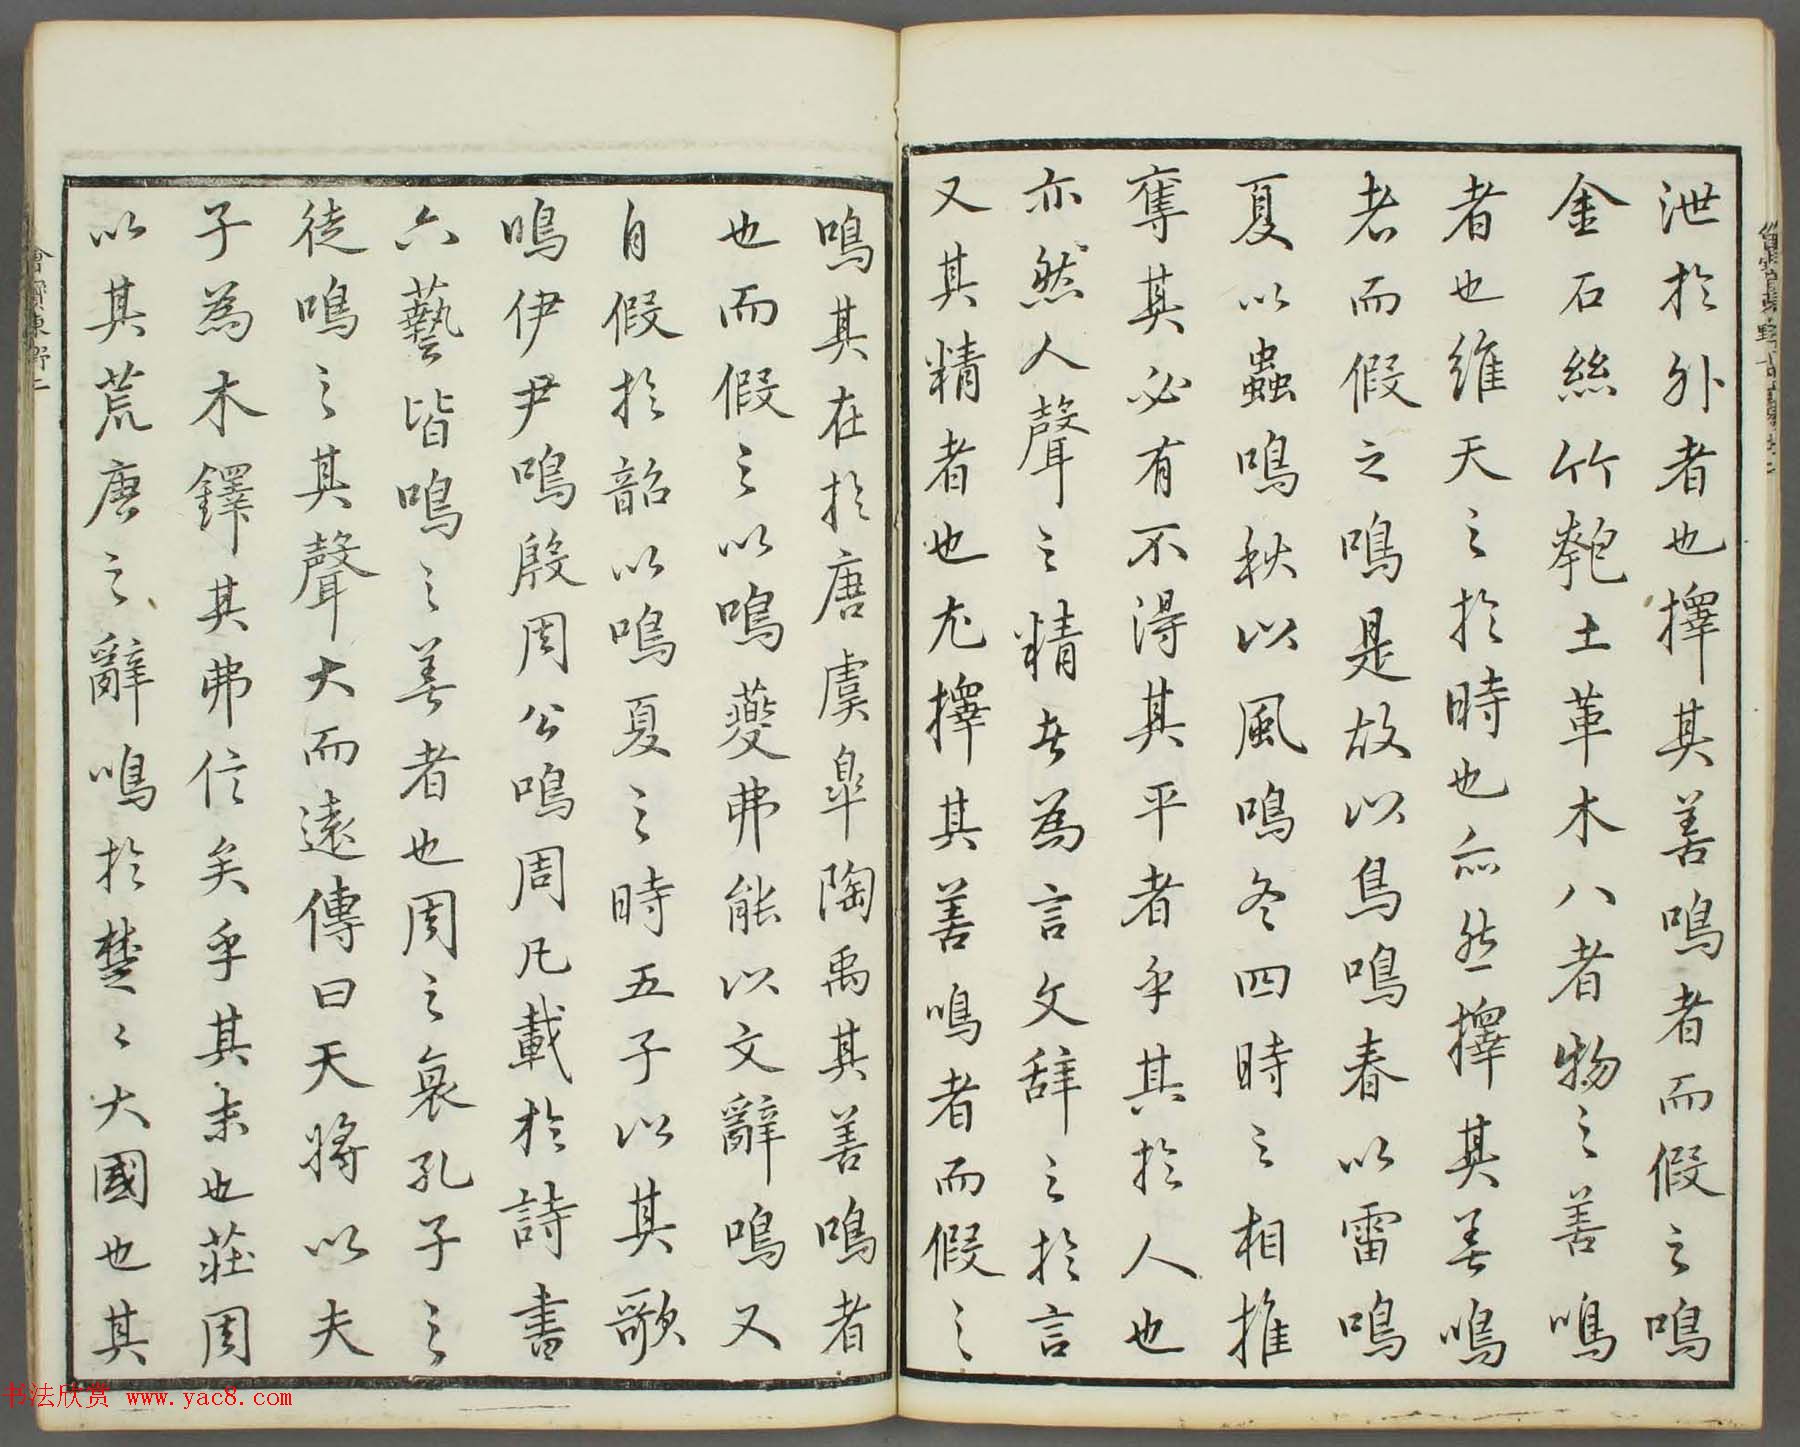 泄於外者也擇其善鳴者而假之鳴
金石絲竹匏土革木八者物之善鳴
者也維天之於時也亦然擇其善鳴
者而假之鳴是故以鳥鳴春以雷鳴
夏以蟲鳴秋以風鳴冬四時之相推
奪其必有不得其平者乎其於人也
亦然人聲之精者為言文辞之於言
又其精者也尤擇其善鳴者而假之
鳴其在於唐虞皐陶禹其善鳴者
也而假之以鳴夔弗能以文辭鳴又
自假於韶以鳴夏之時五子以其歌
鳴伊尹鳴殷周公鳴周凡載於詩書
六藝皆鳴之善者也周之衰孔子之
徒鳴之其聲大而遠傳曰天將以夫
子為木鐸其弗信矣乎其末也莊周
以其荒唐之辭鳴於楚楚大國也其
书法欣赏 www.yac8.com